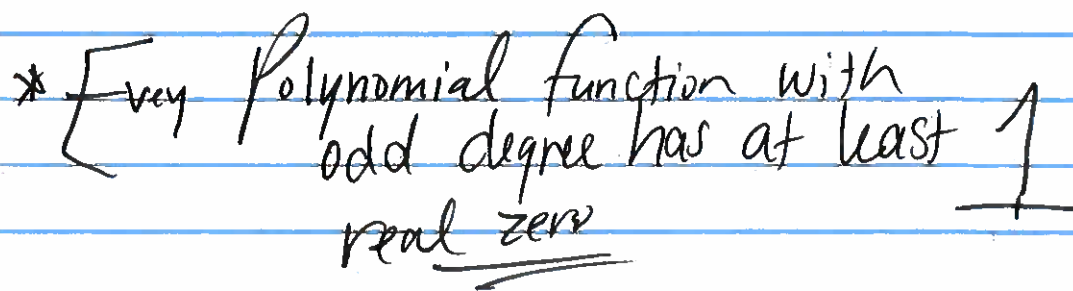 * Every Polynomial function with
odd degree has at least 1
real zero